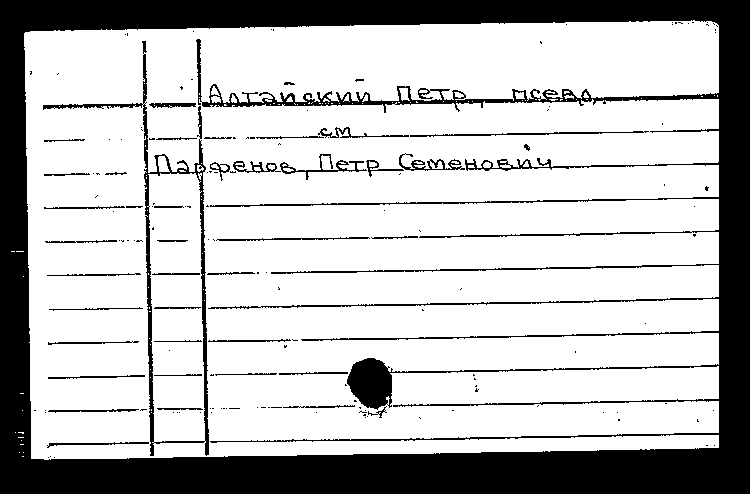 Алтайский, Петр, псевд.
см.
Парфенов, Петр Семенович